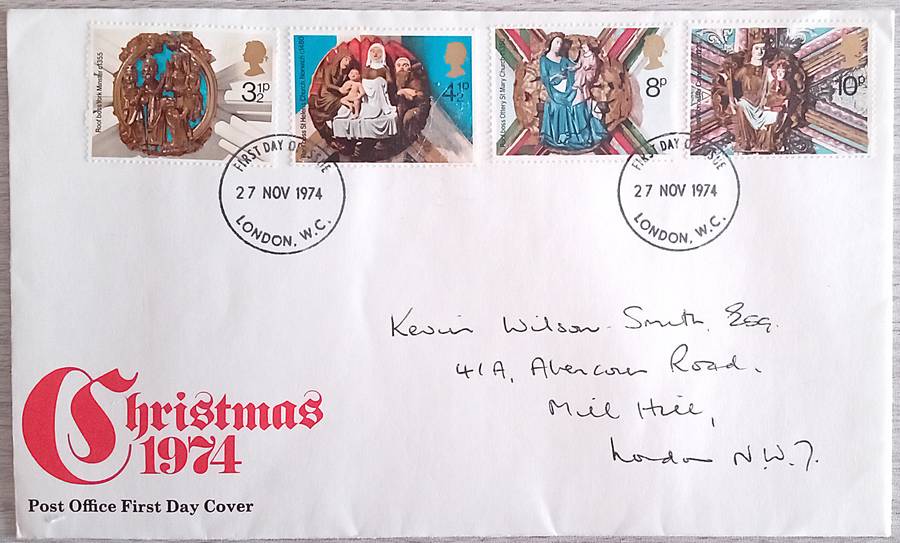 Roof boss York Minster c1355
3½p
boss St Helen's Church Norwich c1480
4½p
Roof boss Ottery St Mary Church
8p
10p
FIRST DAY OF ISSUE
27 NOV 1974
LONDON, W.C.
FIRST DAY OF ISSUE
27 NOV 1974
LONDON, W.C.
Kevin Wilson-Smith, Esq.
41A, Abercorn Road.
Mill Hill,
London N.W.7.
Christmas
1974
Post Office First Day Cover